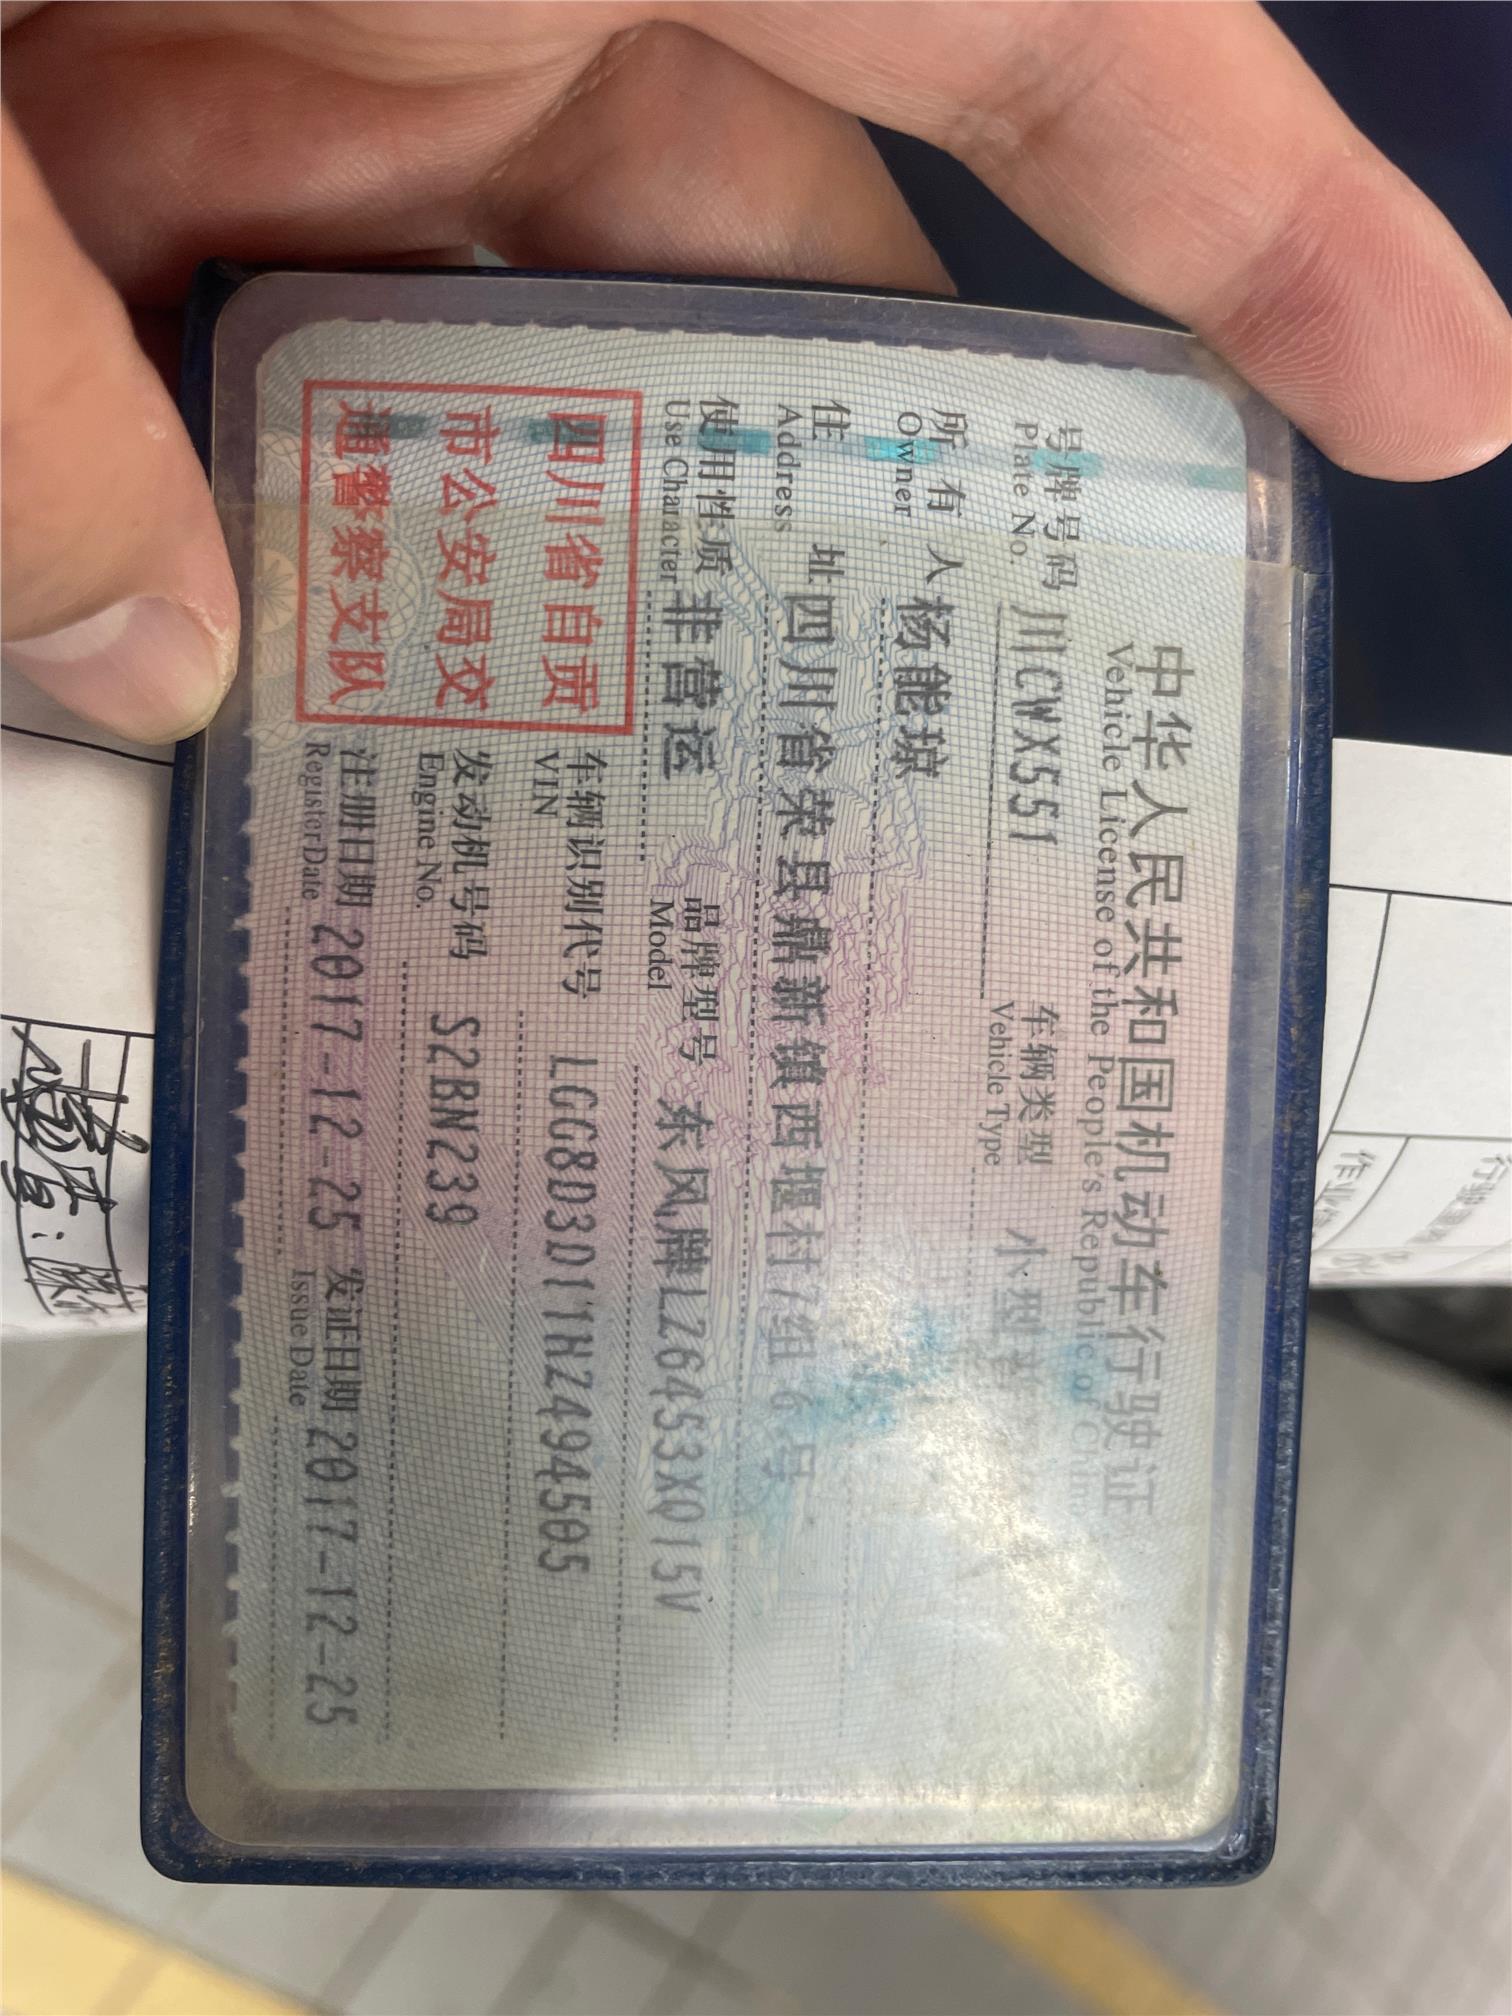 中华人民共和国机动车行驶证
Vehicle License of the People's Republic of China
号牌号码 川CWX551 车辆类型 小型
Plate No. Vehicle Type
所有人 杨能琼
Owner
住址 四川省荣县鼎新镇西堰村7组6号
Address
使用性质 非营运 品牌型号 东风牌LZ6453XQ15V
Use Character Model
四川省自贡
市公安局交
通警察支队
车辆识别代号 LGG8D3D11HZ494505
VIN
发动机号码 S2BN239
Engine No.
注册日期 2017-12-25 发证日期 2017-12-25
Register Date Issue Date